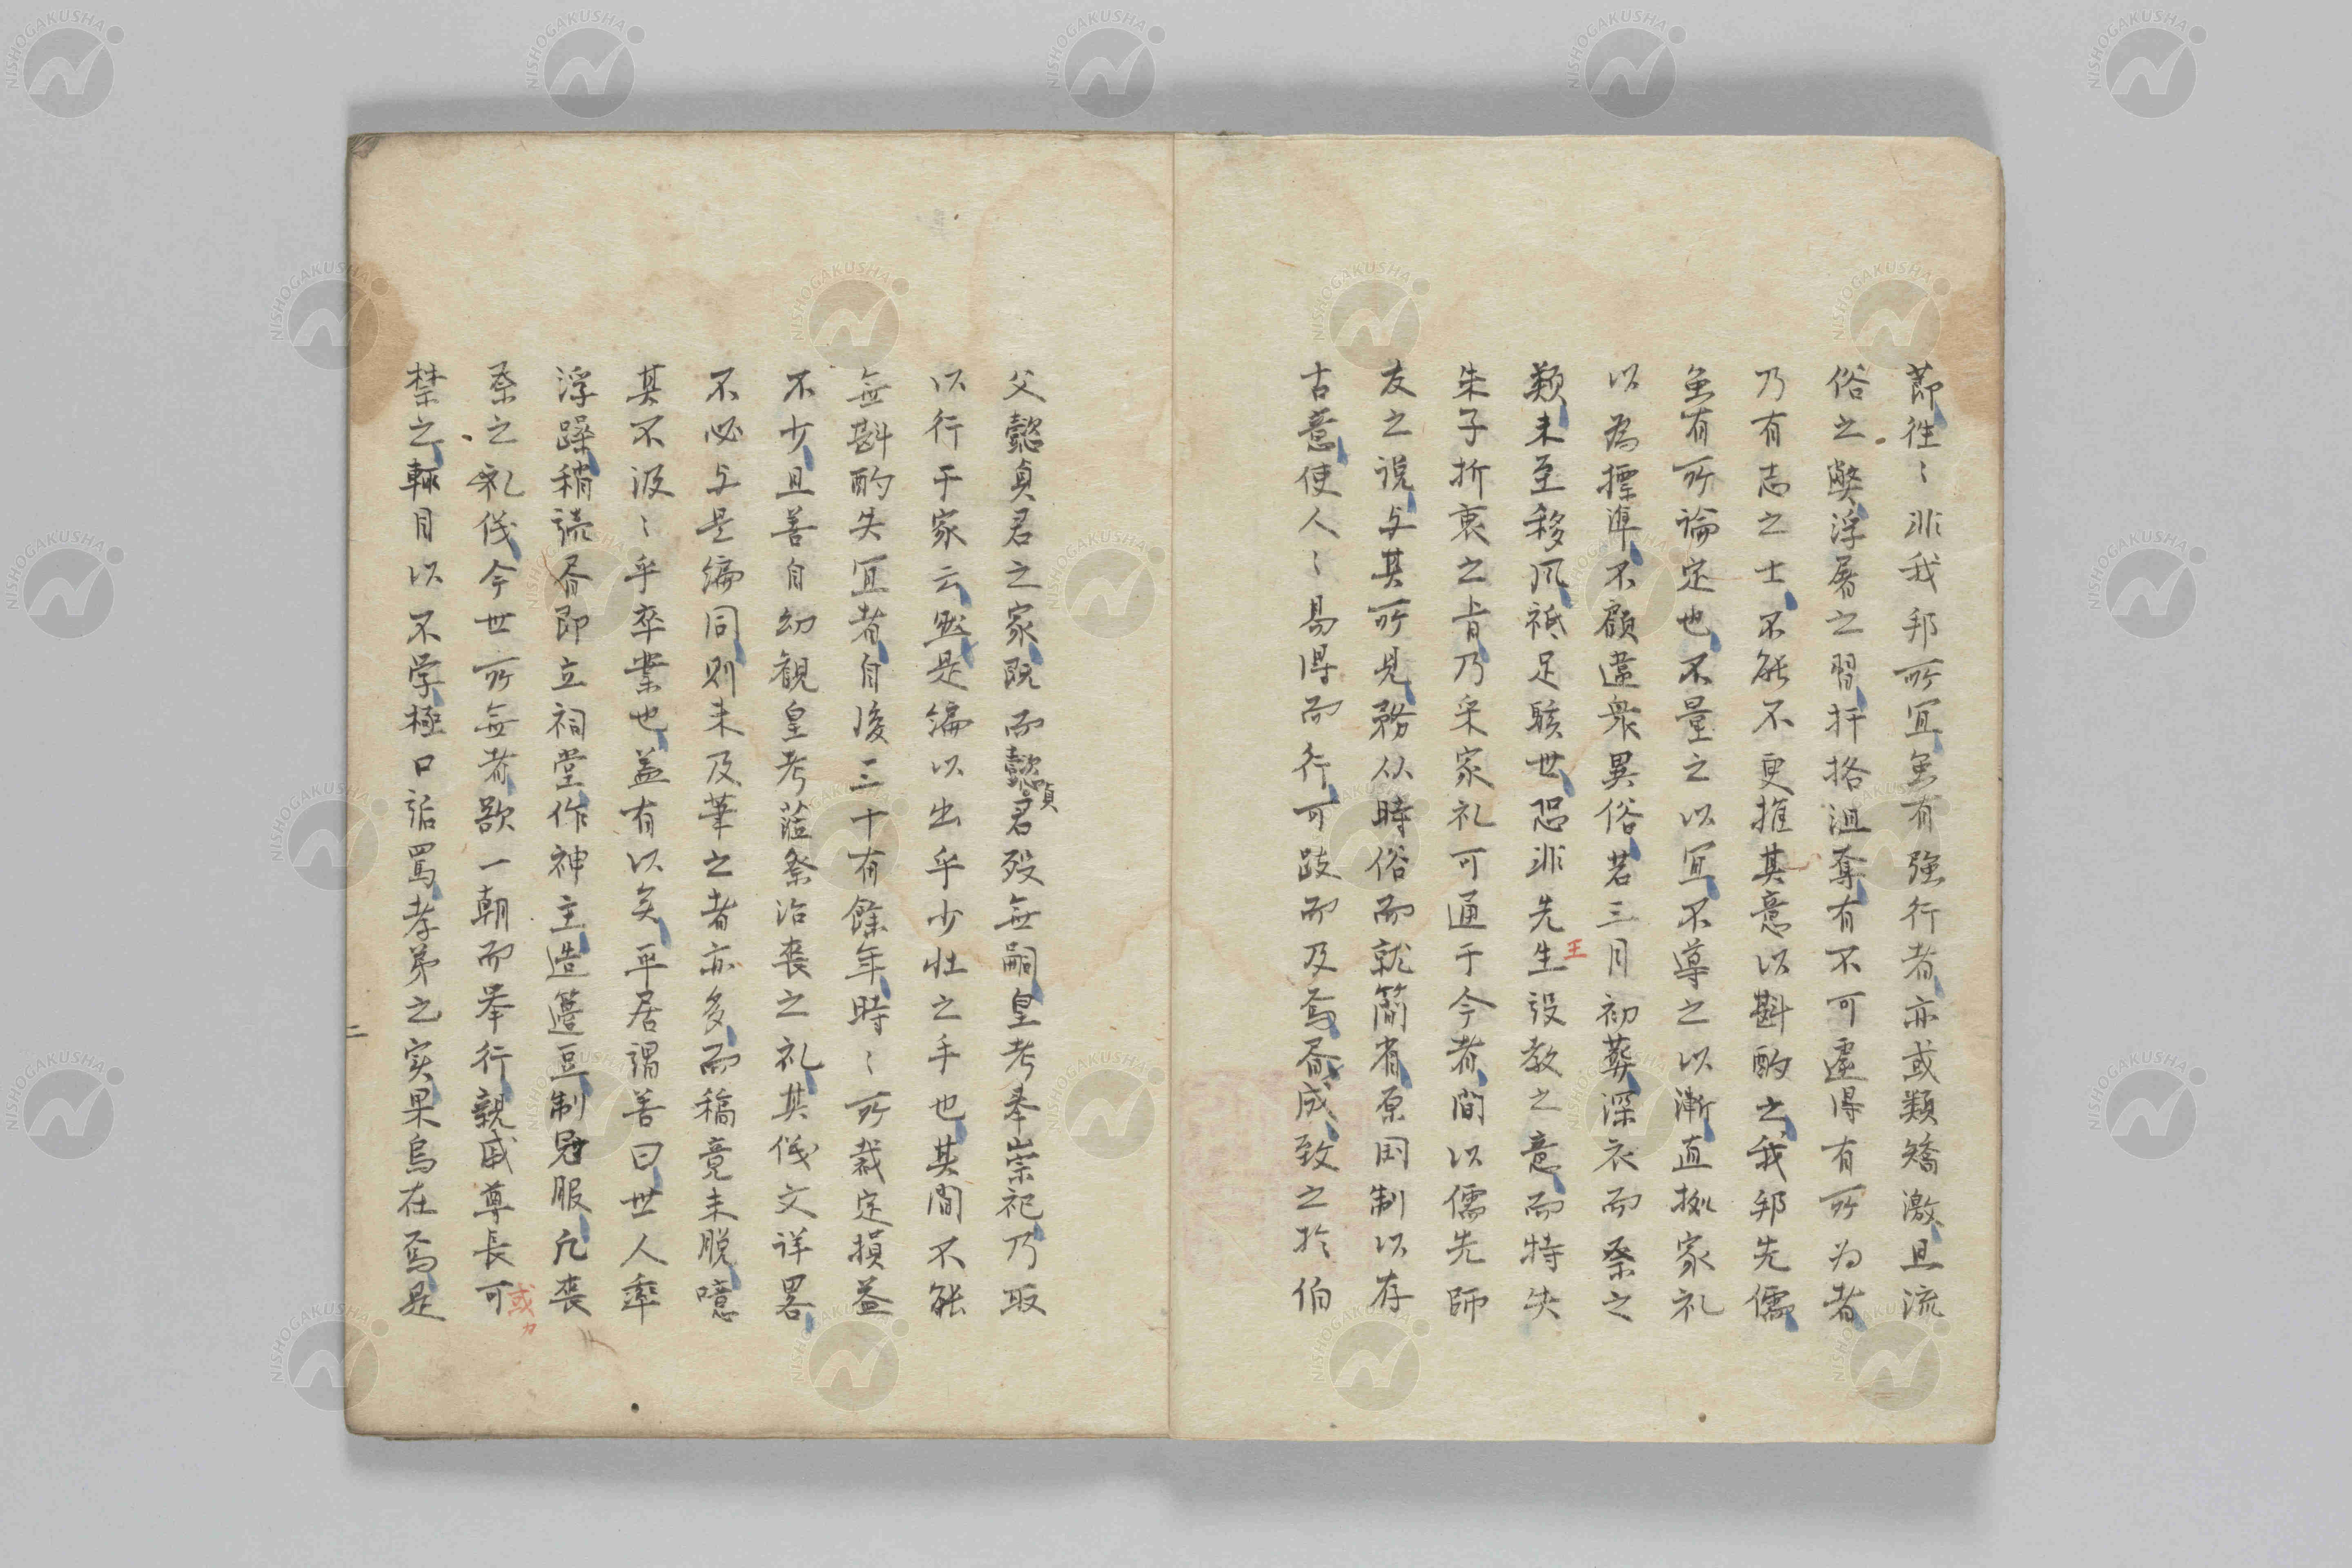 節往〻非我邦所宜虽有強行者亦或類矯激且流
俗之弊浮屠之習扞格沮奪有不可遽得有所为者
乃有志之士不能不更推其意以斟酌之我邦先儒
虽有所論定也不量之以宜不導之以漸直拠家礼
以為標準不顧違衆異俗若三月初葬深衣而祭之
類未至移风祗足駭世恐非先生設教之意而特失
王
朱子折衷之旨乃采家礼可通于今者间以儒先師
友之说与其所見務从時俗而就簡省原国制以存
古意使人〻易得而行可跂而及焉昏成致之於伯
父懿貞君之家既而懿君歿無嗣皇考奉崇祀乃取
貞
以行于家云然是编以出乎少壮之手也其間不能
無斟酌失宜者自後三十有餘年時〻所裁定損益
不少且善自幼観皇考蒞祭治丧之礼其仪文详畧
不必与是编同则未及筆之者亦多而稿竟未脱噫
其不汲〻乎卒業也盖有以矣平居謂善曰世人率
浮躁稍読昏即立祠堂作神主造籩豆制冠服凡丧
祭之礼仪今世所無者欲一朝而举行親戚尊長可
或カ
禁之輒目以不学極口詬罵孝弟之实果烏在焉是
二
NISHOGAKUSHA